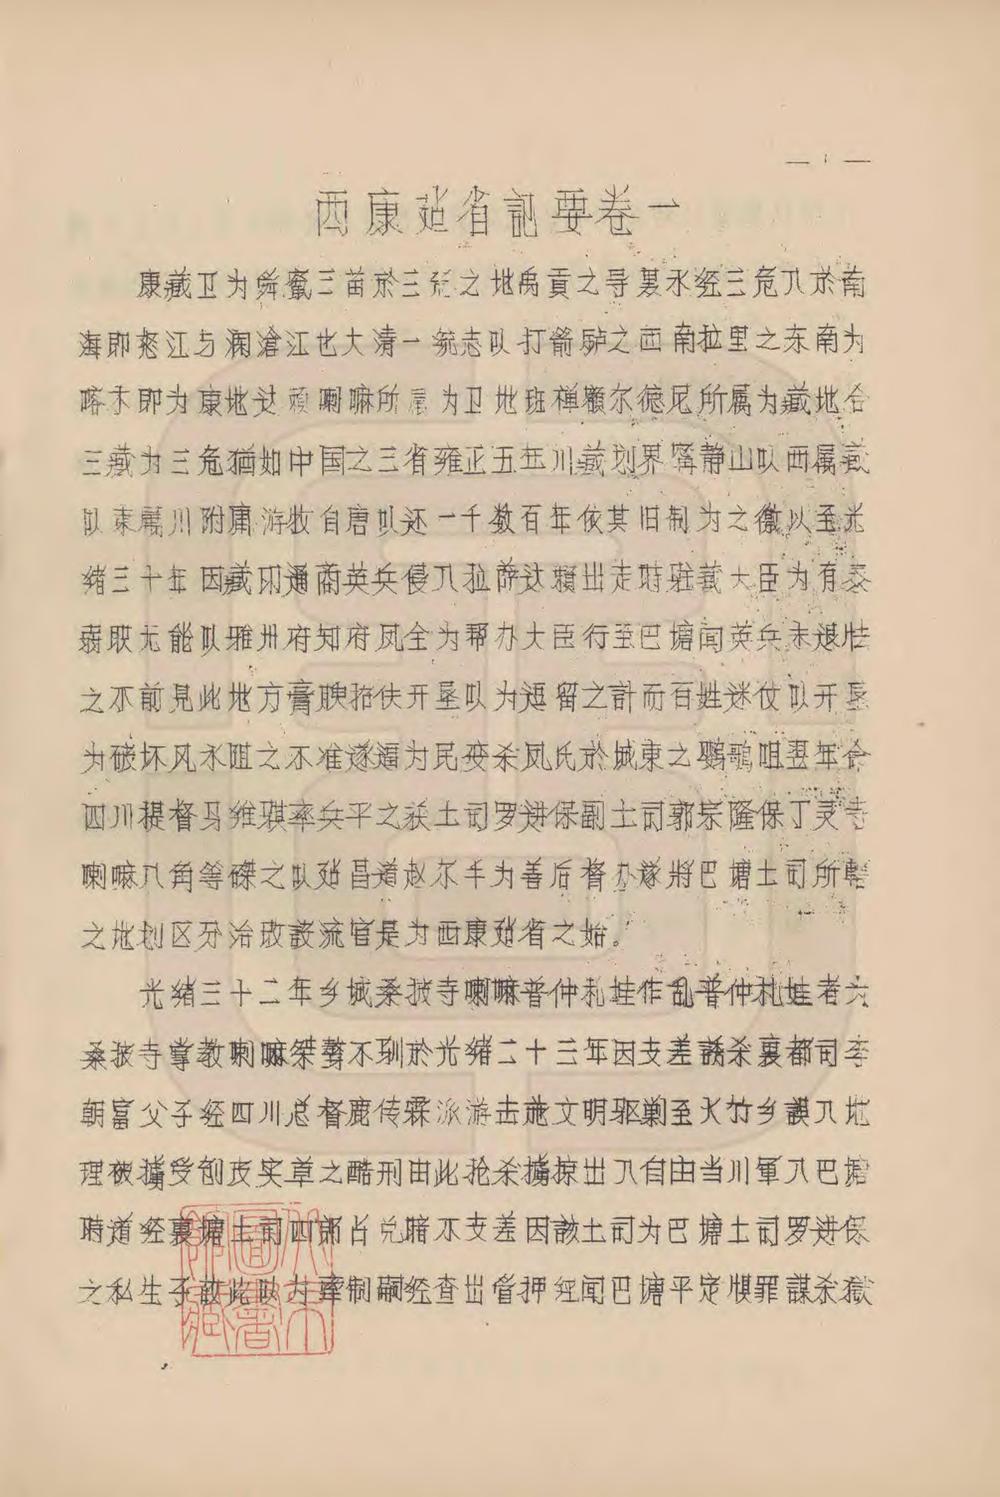 — 1 —
西康建省記要卷一
康藏卫为舜竄三苗於三危之地禹貢之导黑水经三危入於南
海即怒江与澜滄江也大清一統志以打箭驴之西南拉里之东南为
喀木即为康地达頼喇嘛所属为卫地班禅额尔德尼所属为藏地合
三藏为三危猶如中国之三省雍正五年川藏划界寗静山以西属藏
以東屬川附庸游牧自唐以还一千数百年依其旧制为之徵以至光
绪三十年因藏印通商英兵侵入拉薩达賴出走時驻藏大臣为有泰
弱耿无能以雅州府知府凤全为帮办大臣行至巴塘闻英兵未退怯
之不前見此地方膏腴招伕开垦以为逗留之計而百姓迷仗以开垦
为破坏风水阻之不准遂逼为民变杀凤氏於城東之鹦鴞咀翌年会
四川提督马维騏率兵平之获土司罗进保副土司郭宗隆保丁灵寺
喇嘛八角等磔之以建昌道赵尔丰为善后督办遂將巴塘土司所轄
之地划区分治改設流官是为西康建省之始。
光緒三十二年乡城桑披寺喇嘛普仲札娃作乱普仲札娃者六
桑披寺掌教喇嘛桀骜不馴於光绪二十三年因支差誘杀裏都司李
朝富父子经四川总督鹿传霖派游击施文明驱剿至火竹乡誤入地
理被擄受刨皮实草之酷刑由此抢杀擄掠出入自由当川軍入巴塘
時道经裏塘土司四郎占兑暗不支差因該土司为巴塘土司罗进保
之私生子故此以为牽制嗣经查出管押经闻巴塘平定惧罪謀杀獄